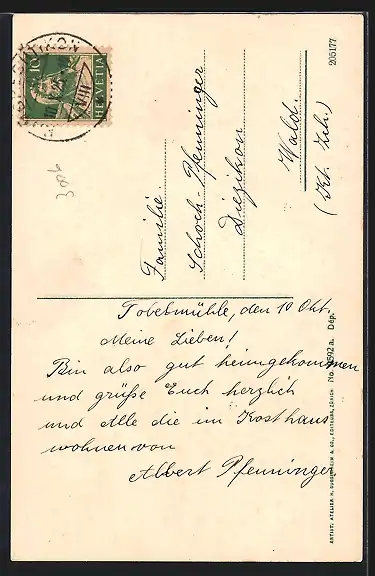 Tobelmühle, den 10 Okt.
Meine Lieben!
Bin also gut heimgekommen
und grüße Euch herzlich
und Alle die im Kosthaus
wohnen von
Albert Pfenninger
Familie
Schoch-Pfenninger
Diezikon
Wald.
(Kt. Zch.)
205177
10
HELVETIA
ARTIST. ATELIER H. GUGGENHEIM & CO., EDITEURS, ZÜRICH No. 12592 a. Dép.